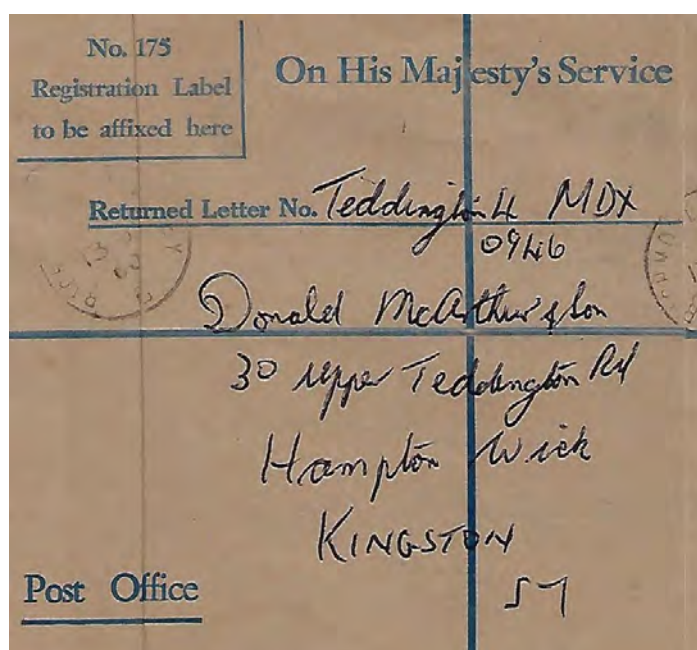 No. 175
Registration Label
to be affixed here
On His Majesty's Service
Returned Letter No. Teddington 4 MDX
0946
Donald McArthur & Son
30 Upper Teddington Rd
Hampton Wick
KINGSTON
57
Post Office